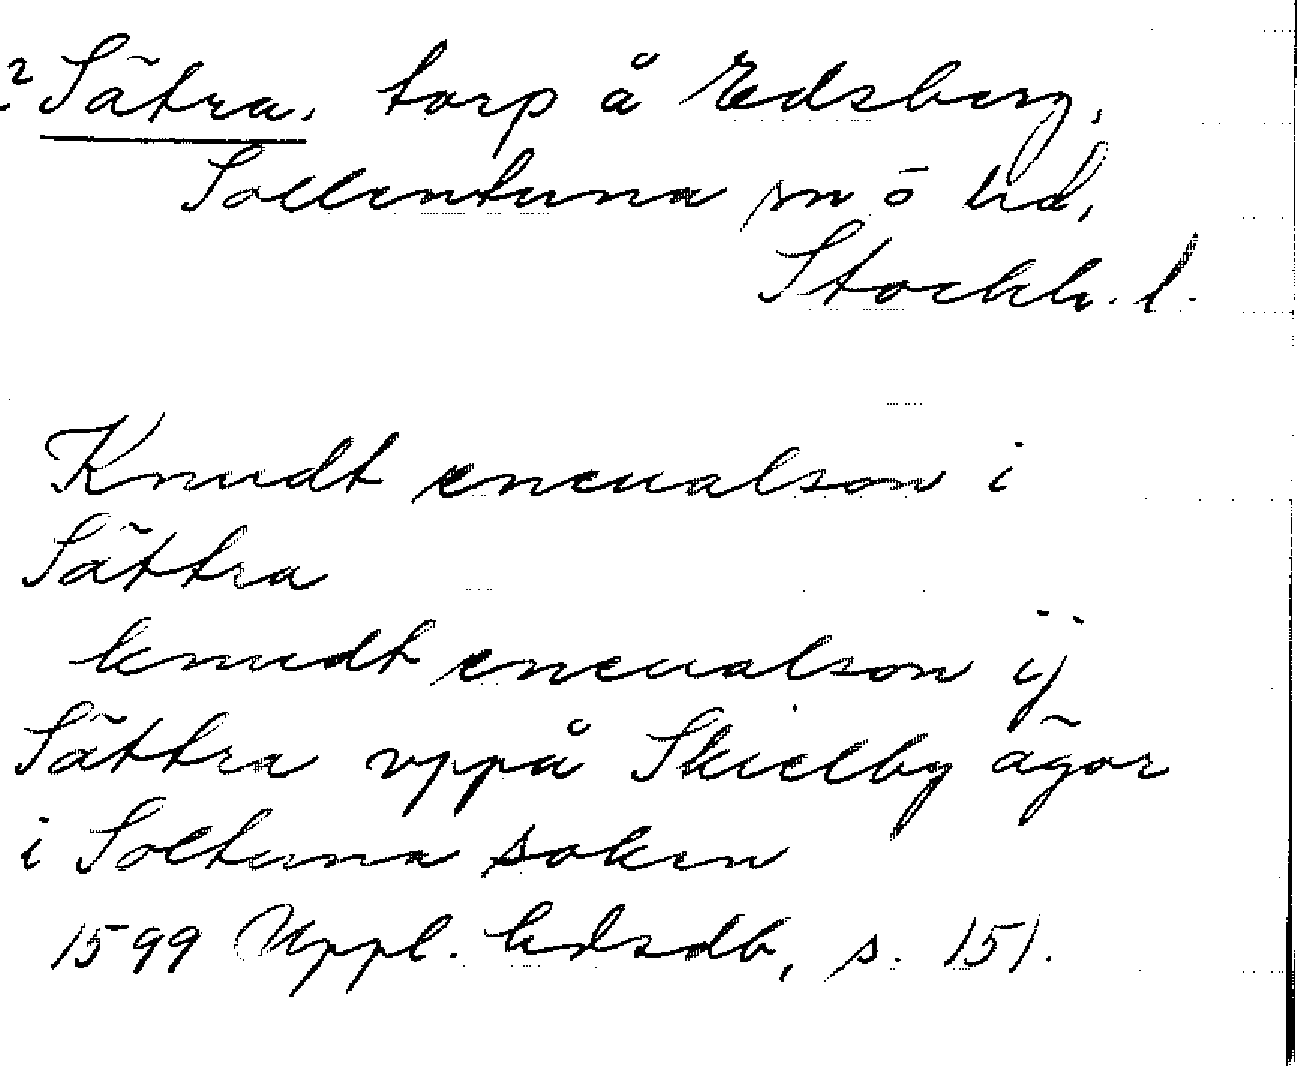 ? Sätra, torp å Edsberg,
Sollentuna sn o hd,
Stockh. l.
Knudt eneualson i
Sättra
knudt eneualson ij
Sättra vppå Skielby ägor
i Soltuna soken
1599 Uppl. hdsdb, s. 151.